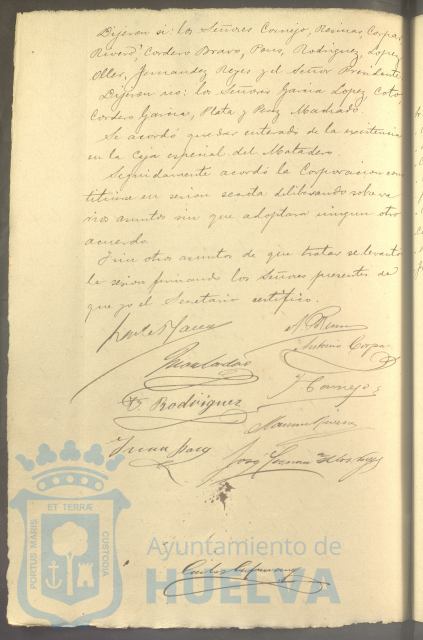 Dijeron si: los Señores Cornejo, Resinas, Corpas,
Rivero, Cordero Bravo, Pons, Rodriguez, Lopez
Oller, Fernandez Reyes y el Señor Presidente.
Dijeron no: los Señores Garcia Lopez, Coto,
Cordero Garcia, Plata y Perez Machado.
Se acordó quedar enterado de la existencia
en la Caja especial del Matadero.
Seguidamente acordó la Corporacion cons
tituirse en sesion secreta deliberando sobre va
rios asuntos sin que adoptara ningun otro
acuerdo.
Y sin otros asuntos de que tratar se levantó
la sesion firmando los Señores presentes de
que yo el Secretario certifico.
Antonio Corpas
J. Cornejo
Rodriguez
Juan
Jose
ET TERRÆ
PORTUS MARIS
CUSTODIA
Ayuntamiento de
HUELVA